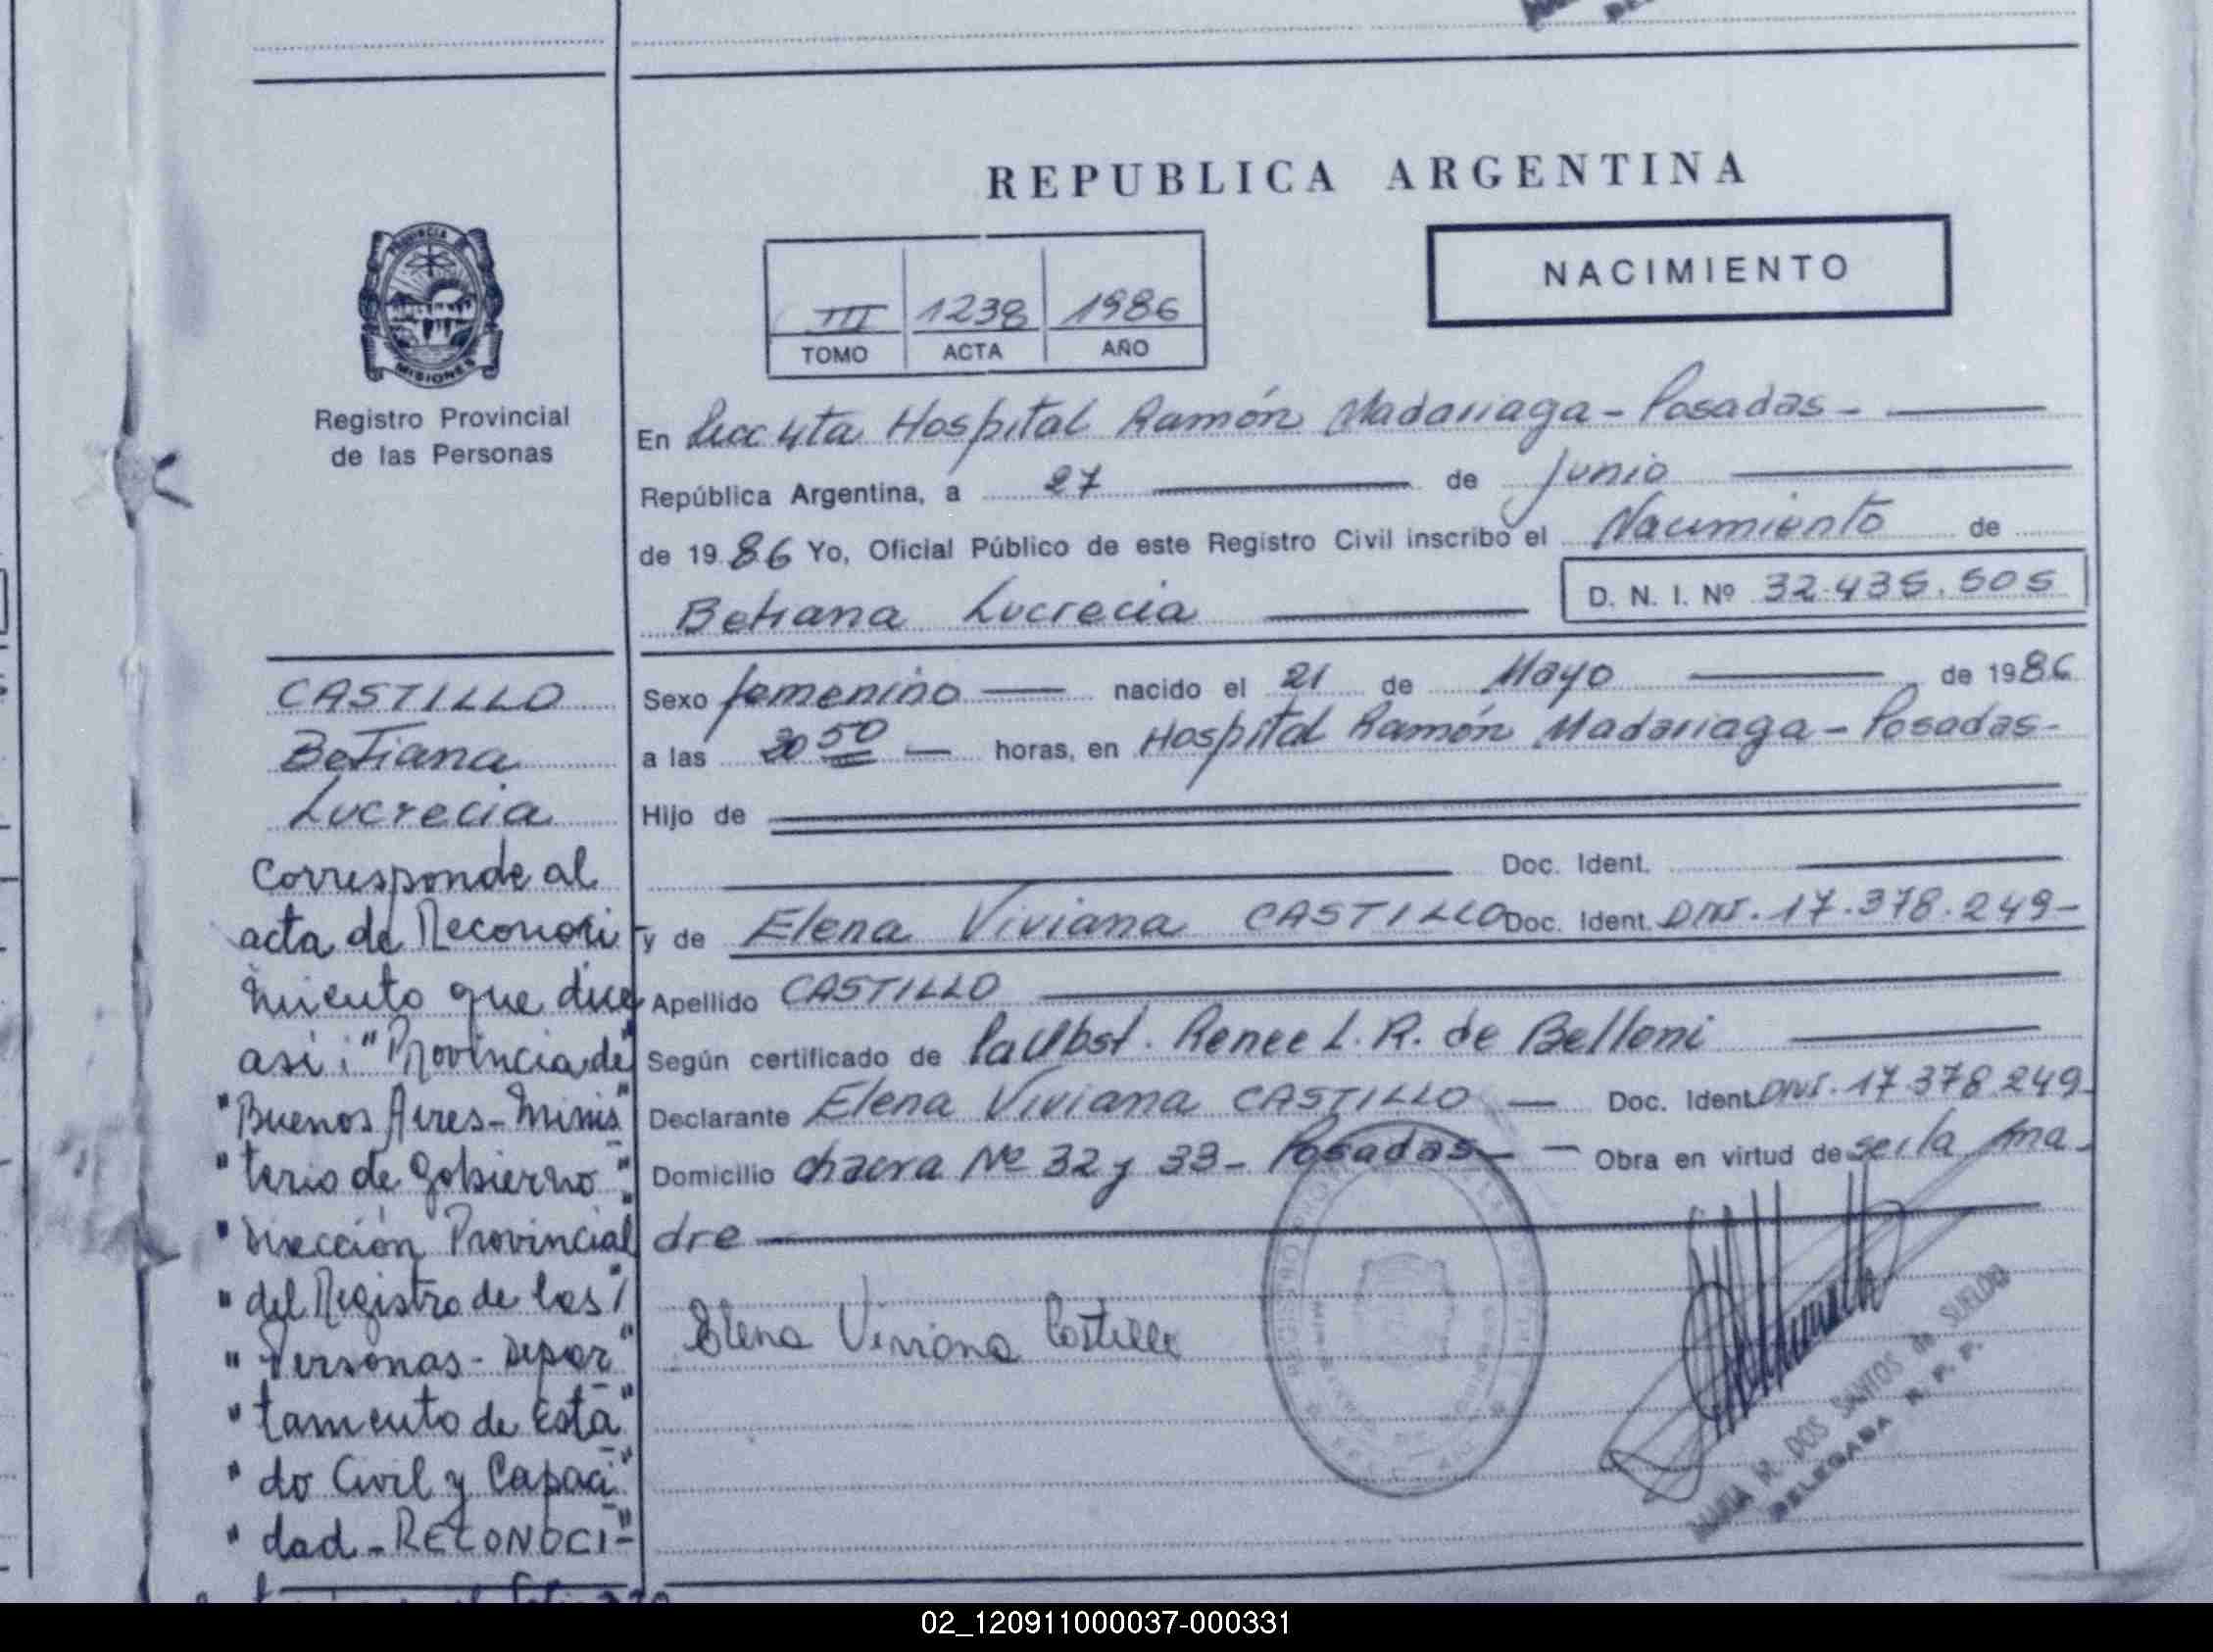 REPUBLICA ARGENTINA
NACIMIENTO
III 1238 1986
TOMO ACTA AÑO
PROVINCIA
MISIONES
Registro Provincial
de las Personas
En Secc 4ta Hospital Ramón Madariaga - Posadas -
República Argentina, a 27 de Junio
de 1986 Yo, Oficial Público de este Registro Civil inscribo el Nacimiento de
Betiana Lucrecia D. N. I. Nº 32.435.505
Sexo femenino nacido el 21 de Mayo de 1986
a las 20 50 horas, en Hospital Ramón Madariaga - Posadas -
Hijo de
Doc. Ident.
y de Elena Viviana CASTILLO Doc. Ident. DNI. 17.378.249-
Apellido CASTILLO
Según certificado de la Obst. Renee L. R. de Belloni
Declarante Elena Viviana CASTILLO — Doc. Ident. DNI. 17.378.249-
Domicilio chacra Nº 32 y 33 - Posadas - Obra en virtud de ser la ma-
dre
Elena Viviana Castillo
MARIA M. DOS SANTOS de SUELDO
DELEGADA R. P. P.
CASTILLO
Betiana
Lucrecia
Corresponde al
acta de Reconoci
miento que dice
asi: "Provincia de"
"Buenos Aires - Minis"
"terio de Gobierno"
"Dirección Provincial
"del Registro de las"
"Personas - Depar"
"tamento de Esta"
"do Civil y Capaci"
"dad - RECONOCI-"
02_120911000037-000331